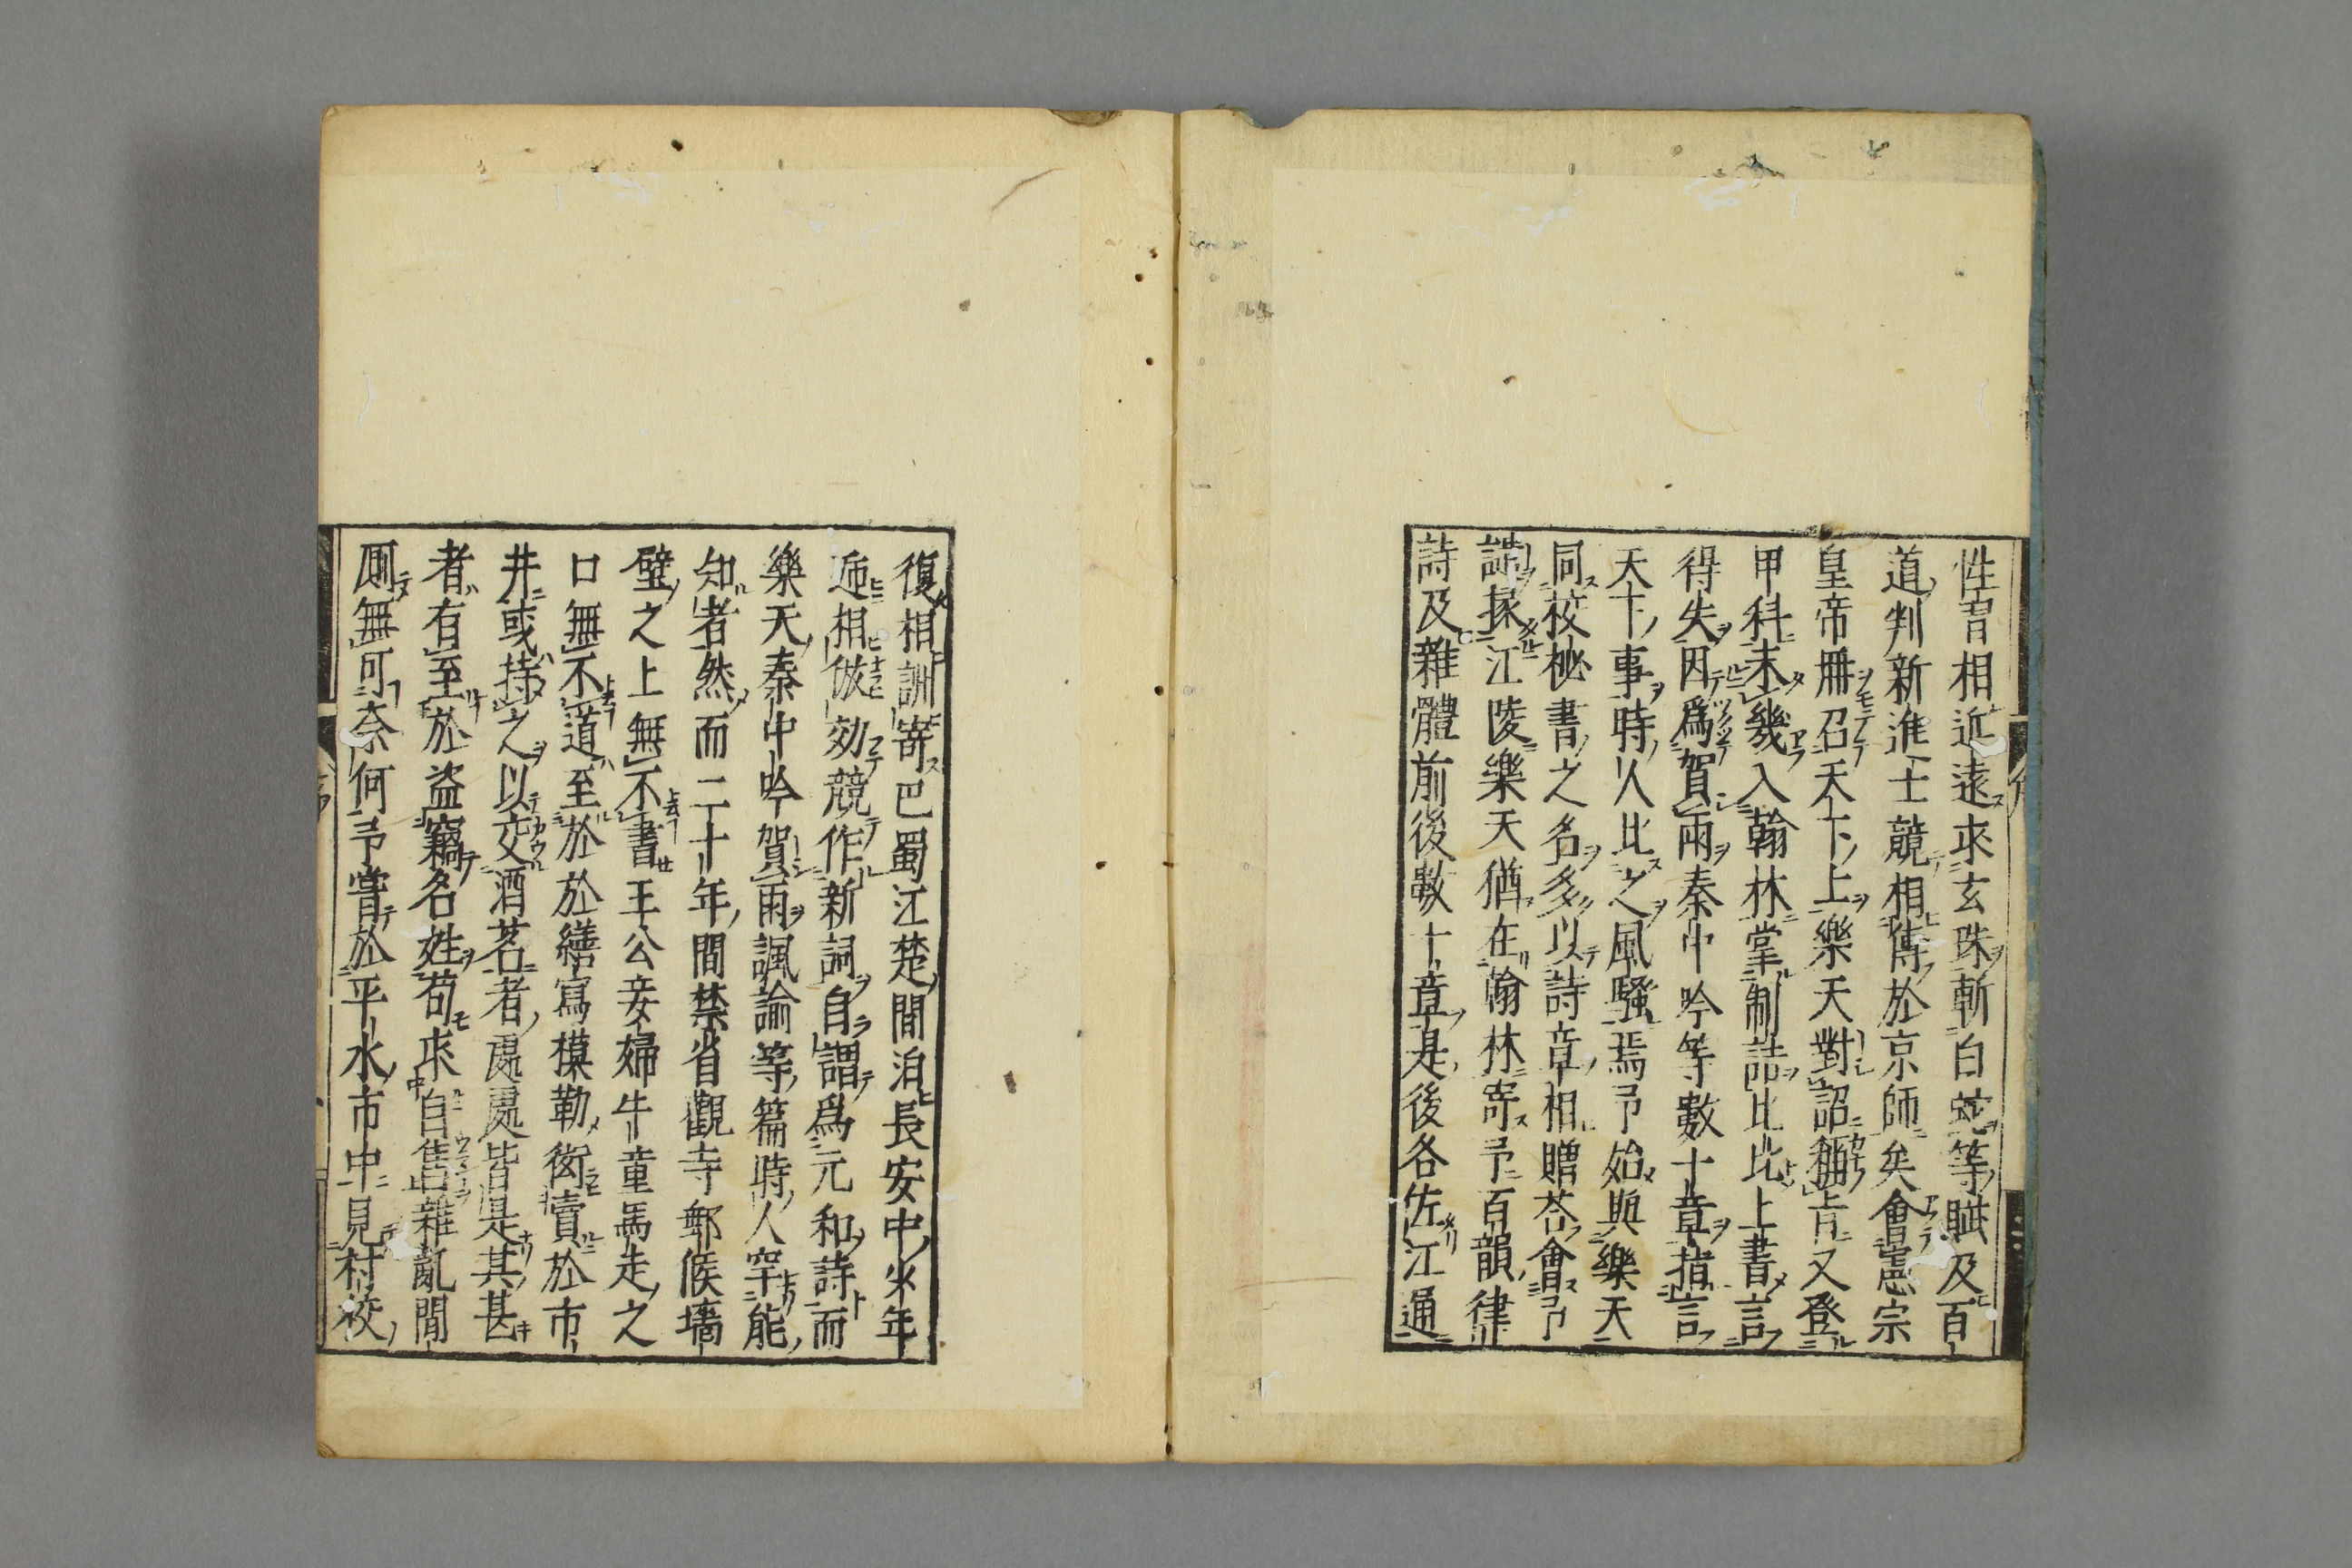 性習相近遠求玄珠斬白蛇等賦及百
道判新進士競相傳於京師矣會憲宗
皇帝冊召天下上樂天對詔稱旨又登
甲科未幾入翰林掌制誥比比上書言
得失因爲賀雨秦中吟等數十章指言
天下事時人比之風騷焉予始與樂天
同校秘書之名多以詩章相贈荅會予
譴掾江陵樂天猶在翰林寄予百韻律
詩及雜體前後數十章是後各佐江通
復相詶寄巴蜀江楚間洎長安中少年
逓相倣効競作新詞自謂爲元和詩而
樂天秦中吟賀雨諷諭等篇時人罕能
知者然而二十年間禁省觀寺郵候墻
壁之上無不書王公妾婦牛童馬走之
口無不道至於於繕寫模勒衒賣於市
井或持之以交酒茗者處處皆是其甚
者有至於盗竊名姓苟求自售雜亂間
厠無可奈何予嘗於平水市中見村校